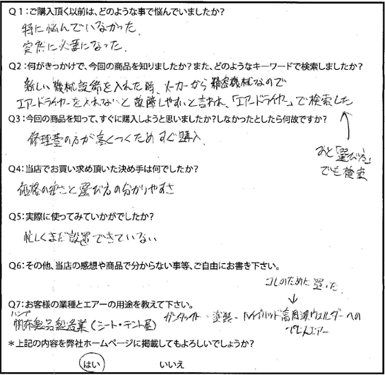 Q1：ご購入頂く以前は、どのような事で悩んでいましたか?
特に悩んでいなかった。
突然に必要になった。
Q2：何がきっかけで、今回の商品を知りましたか?また、どのようなキーワードで検索しましたか?
新しい機械設備を入れた時、メーカーから精密機械なので
エアードライヤーを入れないと故障しやすいと言われ、「エアードライヤー」で検索した
Q3：今回の商品を知って、すぐに購入しようと思いましたか?しなかったとしたら何故ですか?
修理費の方が高くつくためすぐ購入
あと「選び方」
でも検索
Q4：当店でお買い求め頂いた決め手は何でしたか?
価格の安さと選び方の分かりやすさ
Q5：実際に使ってみていかがでしたか?
忙しくまだ設置できていない
Q6：その他、当店の感想や商品で分からない事等、ご自由にお書き下さい。
Q7：お客様の業種とエアーの用途を教えて下さい。
コレのために買った
ハンプ
帆布製品製造業(シート・テント屋)
ガンタッカー・塗装・ハイブリッド高周波ウェルダーへの
＊上記の内容を弊社ホームページに掲載してもよろしいでしょうか?
はい いいえ